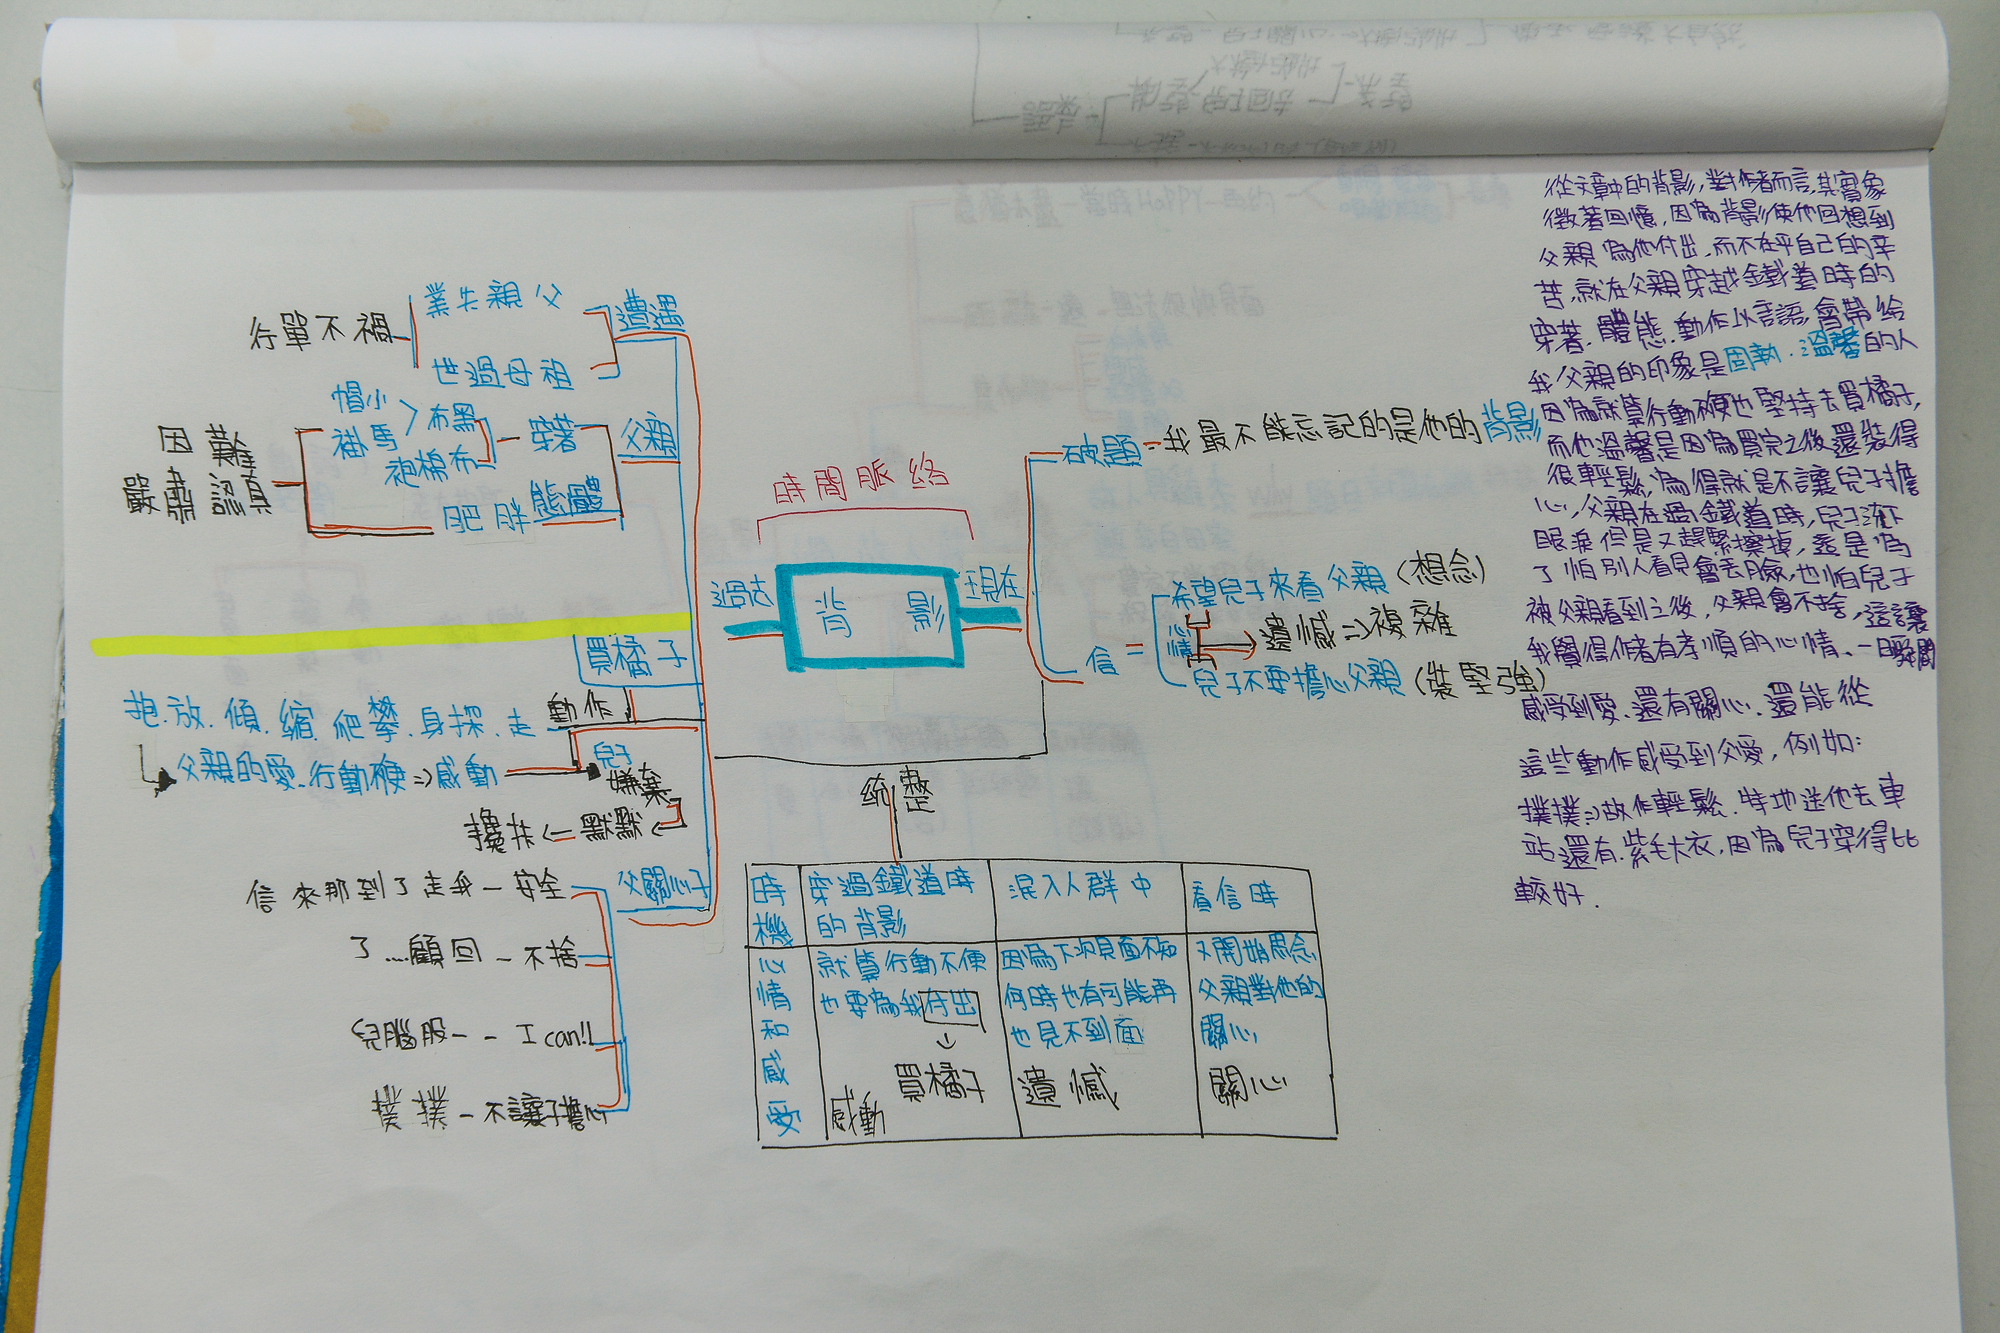 時間脈絡
過去
背影
現在
遭遇
業失親父
世過母祖
行單不禍
父親
穿著
帽小
褂馬
布黑
袍棉布
態體
肥胖
困難
嚴肅 認真
買橘子
動作
抱.放.傾.縮.爬攀.身探.走
兒子
父親的愛.行動硬=>感動
嫌棄
攙扶<-默默
父關心子
信來那到了走我-安全
了....顧回-不捨
兒腦股--I can!!
撲撲-不讓子擔心
破題-我最不能忘記的是他的背影
信=
希望兒子來看父親(想念)
遺憾=>複雜
兒子不要擔心父親(裝堅強)
統整
時機
穿過鐵道時的背影
混入人群中
看信時
心情和感受
就算行動不便
也要為我付出
買橘子
感動
因為下次見面不知
何時也有可能再
也見不到面
遺憾
又開始思念
父親對他的
關心
關心
從文章中的背影,對作者而言,其實象
徵著回憶,因為背影使他回想到
父親為他付出,而不在乎自己的辛
苦,就在父親穿越鐵道時的
穿著.體態.動作以言語,會帶給
我父親的印象是固執.溫馨的人
因為就算行動硬也堅持去買橘子,
而他溫馨是因為買完之後還裝得
很輕鬆,為得就是不讓兒子擔
心,父親在過鐵道時,兒子流下
眼淚但是又趕緊擦掉,這是為
了怕別人看見會丟臉,也怕兒子
被父親看到之後,父親會不捨,這讓
我覺得作者有孝順的心情、一瞬間
感受到愛.還有關心.還能從
這些動作感受到父愛,例如:
撲撲=>故作輕鬆.特地送他去車
站還有.紫毛大衣,因為兒子穿得比
較好.